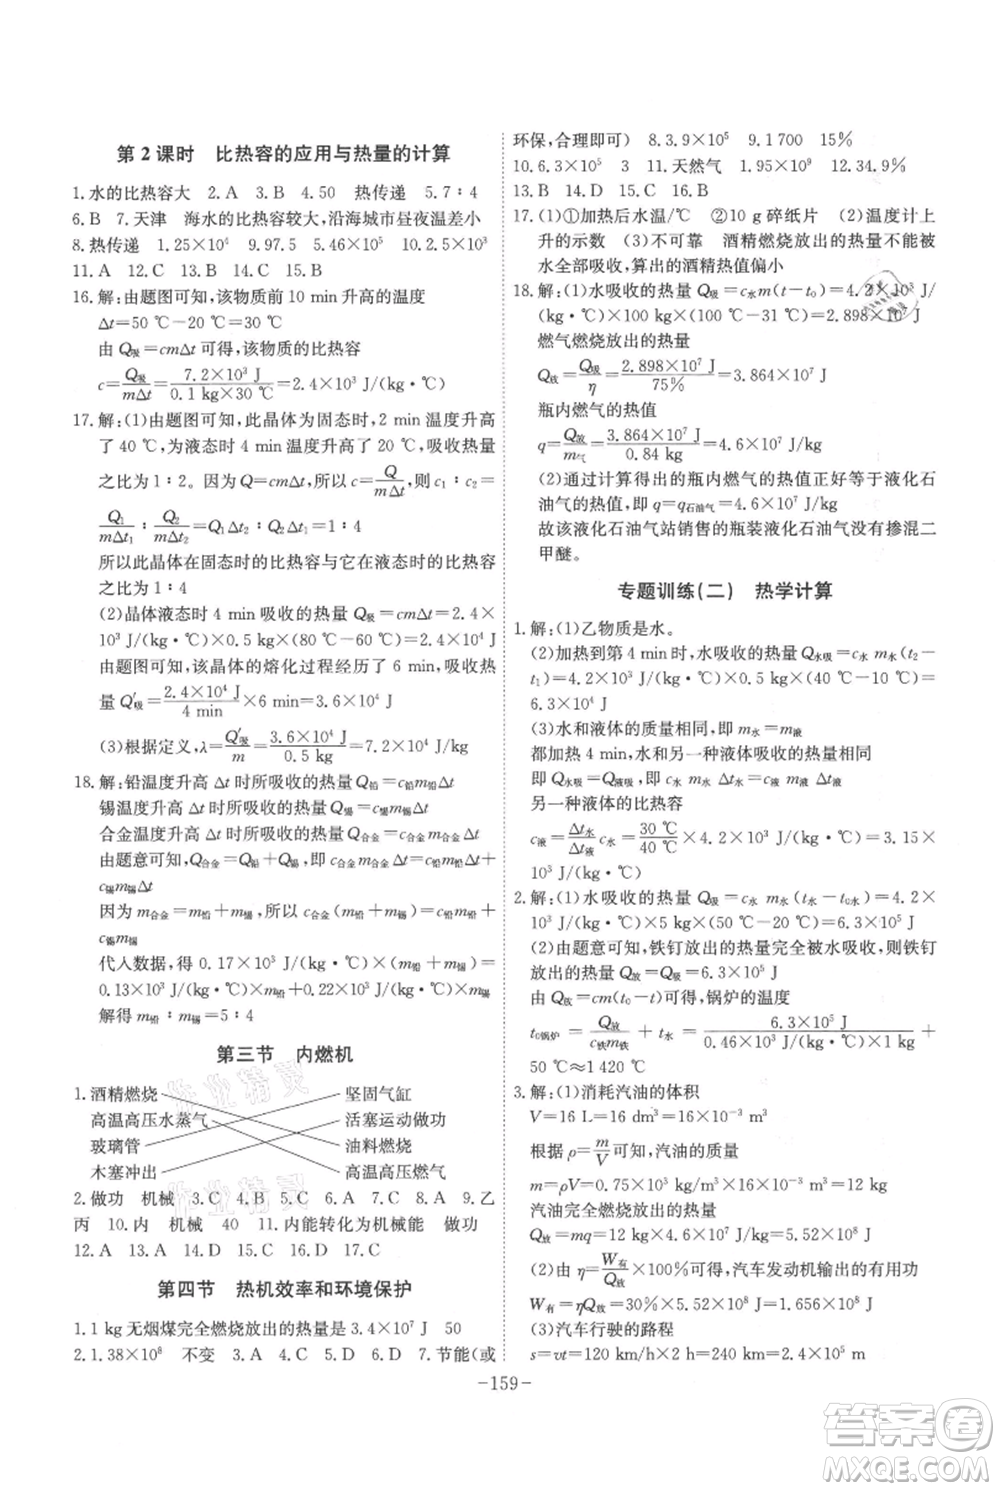 第 2 课时　比热容的应用与热量的计算
1.水的比热容大　2.A　3.B　4.50　热传递　5.7∶4
6.B　7.天津　海水的比热容较大,沿海城市昼夜温差小
8.热传递　1.25×10⁴　9.97.5　5.46×10⁴　10.2.5×10³
11.A　12.C　13.B　14.C　15.B
16.解:由题图可知,该物质前 10 min 升高的温度
Δt=50 ℃-20 ℃=30 ℃
由 Q吸=cmΔt 可得,该物质的比热容
c=Q吸/(mΔt)=7.2×10³ J/(0.1 kg×30 ℃)=2.4×10³ J/(kg·℃)
17.解:(1)由题图可知,此晶体为固态时,2 min 温度升高
了 40 ℃,为液态时 4 min 温度升高了 20 ℃,吸收热量
之比为 1∶2。因为 Q=cmΔt,所以 c=Q/(mΔt),则 c₁∶c₂=
Q₁/(mΔt₁)∶Q₂/(mΔt₂)=Q₁Δt₂∶Q₂Δt₁=1∶4
所以此晶体在固态时的比热容与它在液态时的比热容
之比为 1∶4
(2)晶体液态时 4 min 吸收的热量 Q吸=cmΔt=2.4×
10³ J/(kg·℃)×0.5 kg×(80 ℃-60 ℃)=2.4×10⁴ J
由题图可知,该晶体的熔化过程经历了 6 min,吸收热
量 Q′吸=2.4×10⁴ J/4 min×6 min=3.6×10⁴ J
(3)根据定义,λ=Q′吸/m=3.6×10⁴ J/0.5 kg=7.2×10⁴ J/kg
18.解:铅温度升高 Δt 时所吸收的热量 Q铅=c铅m铅Δt
锡温度升高 Δt 时所吸收的热量 Q锡=c锡m锡Δt
合金温度升高 Δt 时所吸收的热量 Q合金=c合金m合金Δt
由题意可知,Q合金=Q铅+Q锡,即 c合金m合金Δt=c铅m铅Δt+
c锡m锡Δt
因为 m合金=m铅+m锡,所以 c合金(m铅+m锡)=c铅m铅+
c锡m锡
代入数据,得 0.17×10³ J/(kg·℃)×(m铅+m锡)=
0.13×10³ J/(kg·℃)×m铅+0.22×10³ J/(kg·℃)×m锡
解得 m铅∶m锡=5∶4
第三节　内燃机
1.酒精燃烧　坚固气缸
高温高压水蒸气　活塞运动做功
玻璃管　油料燃烧
木塞冲出　高温高压燃气
2.做功　机械　3.C　4.B　5.C　6.A　7.B　8.C　9.乙
丙　10.内　机械　40　11.内能转化为机械能　做功
12.A　13.A　14.D　15.C　16.D　17.C
第四节　热机效率和环境保护
1.1 kg无烟煤完全燃烧放出的热量是3.4×10⁷ J　50
2.1.38×10⁸　不变　3.B　4.A　5.C　6.A　7.节能(或
环保,合理即可)　8.3.9×10⁵　9.1 700　15%
10.6.3×10⁵　3　11.天然气　1.95×10⁹　12.34.9%
13.B　14.D　15.C　16.B
17.(1)①加热后水温/℃　②10 g碎纸片　(2)温度计上
升的示数　(3)不可靠　酒精燃烧放出的热量不能被
水全部吸收,算出的酒精热值偏小
18.解:(1)水吸收的热量 Q吸=c水m(t-t₀)=4.2×10³ J/
(kg·℃)×100 kg×(100 ℃-31 ℃)=2.898×10⁷ J
燃气燃烧放出的热量
Q放=Q吸/η=2.898×10⁷ J/75%=3.864×10⁷ J
瓶内燃气的热值
q=Q放/m气=3.864×10⁷ J/0.84 kg=4.6×10⁷ J/kg
(2)通过计算得出的瓶内燃气的热值正好等于液化石
油气的热值,即 q=q石油气=4.6×10⁷ J/kg
故该液化石油气站销售的瓶装液化石油气没有掺混二
甲醚。
专题训练(二)　热学计算
1.解:(1)乙物质是水。
(2)加热到第 4 min 时,水吸收的热量 Q水吸=c水 m水(t₂-
t₁)=4.2×10³ J/(kg·℃)×0.5 kg×(50 ℃-20 ℃)=
6.3×10⁴ J
(3)水和液体的质量相同,即 m水=m液
都加热 4 min,水和另一种液体吸收的热量相同
即 Q水吸=Q液吸,即 c水 m水 Δt水=c液 m液 Δt液
另一种液体的比热容
c液=Δt水/Δt液 c水=30 ℃/40 ℃×4.2×10³ J/(kg·℃)=3.15×
10³ J/(kg·℃)
2.解:(1)水吸收的热量 Q吸=c水 m水(t水-t0水)=4.2×
10³ J/(kg·℃)×5 kg×(50 ℃-20 ℃)=6.3×10⁵ J
(2)由题意可知,铁钉放出的热量完全被水吸收,则铁钉
放出的热量 Q放=Q吸=6.3×10⁵ J
由 Q放=cm(t₀-t)可得,锅炉的温度
t0锅炉=Q放/(c铁m铁)+t水=6.3×10⁵ J/(0.46×10³ J/(kg·℃)×1 kg)+
50 ℃≈1 420 ℃
3.解:(1)消耗汽油的体积
V=16 L=16 dm³=16×10⁻³ m³
根据 ρ=m/V可知,汽油的质量
m=ρV=0.75×10³ kg/m³×16×10⁻³ m³=12 kg
汽油完全燃烧放出的热量
Q放=mq=12 kg×4.6×10⁷ J/kg=5.52×10⁸ J
(2)由 η=W有/Q放可得,汽车发动机输出的有用功
W有=ηQ放=30%×5.52×10⁸ J=1.656×10⁸ J
(3)汽车行驶的路程
s=vt=120 km/h×2 h=240 km=2.4×10⁵ m
-159-
答案圈
MXQE.COM